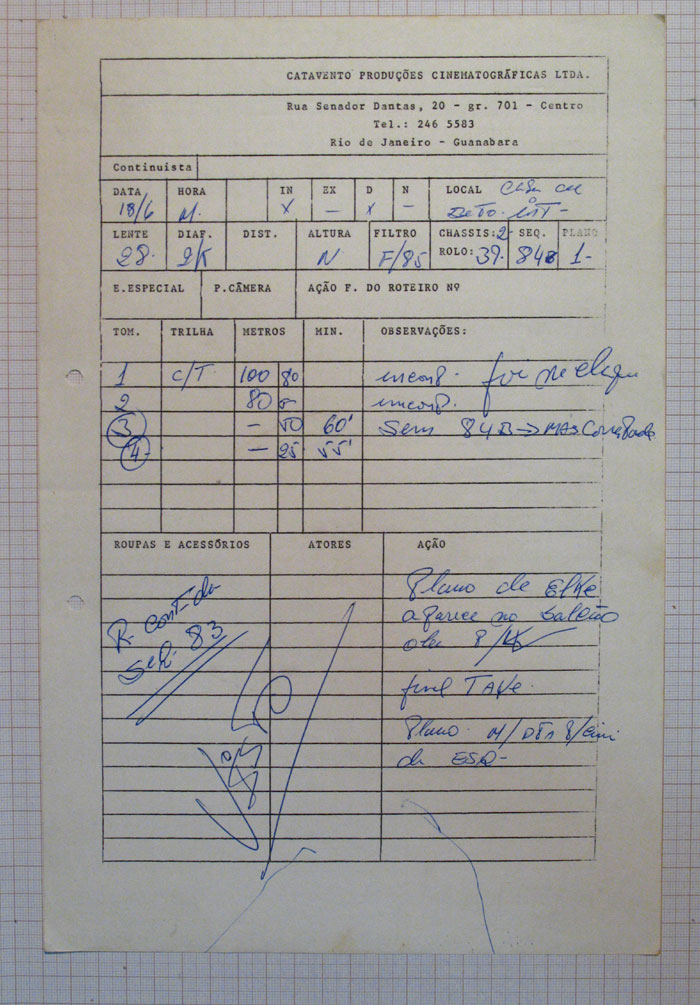 CATAVENTO PRODUÇÕES CINEMATOGRÁFICAS LTDA.
Rua Senador Dantas, 20 - gr. 701 - Centro
Tel.: 246 5583
Rio de Janeiro - Guanabara
Continuista
DATA HORA IN EX D N LOCAL
18/6 M. X — X —
LENTE DIAF. DIST. ALTURA FILTRO CHASSIS: 2- SEQ. PLANO
28. N F/85 ROLO: 39. 84B 1-
E.ESPECIAL P.CÂMERA AÇÃO F. DO ROTEIRO Nº
TOM. TRILHA METROS MIN. OBSERVAÇÕES:
1 C/T. 100 80 incomp. foi
2 80 incomp.
3 — 50 60' Sem 84B → MAS
4- — 25 55'
ROUPAS E ACESSÓRIOS ATORES AÇÃO
R. cont. da
Seq. 83
Plano de Elke
aparece no
final TAKE.
Plano. M/